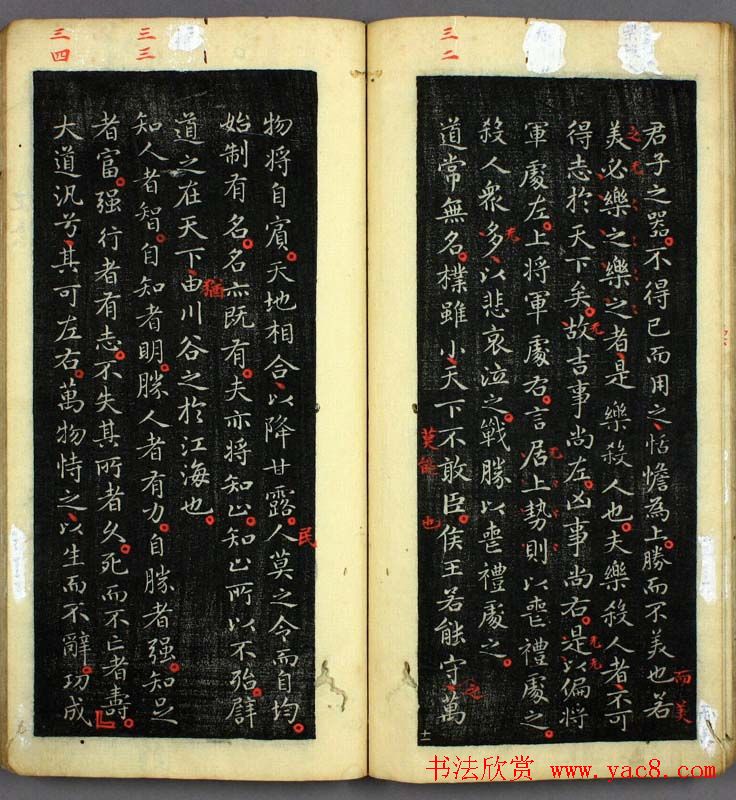 三二
君子之器不得已而用之恬憺為上勝而不美也若
而美
美必樂之樂之者是樂殺人也夫樂殺人者不可
之
无
得志於天下矣故吉事尚左凶事尚右是以偏將
无
无无
軍處左上將軍處右言居上勢則以喪禮處之
无
殺人衆多以悲哀泣之戰勝以喪禮處之
无
道常無名樸雖小天下不敢臣侯王若能守萬
莫能
也
之
十
三三
三四
物將自賓天地相合以降甘露人莫之令而自均
民
始制有名名亦既有夫亦將知止知止所以不殆譬
道之在天下由川谷之於江海也
猶
知人者智自知者明勝人者有力自勝者强知足
者富强行者有志不失其所者久死而不亡者壽
大道汎兮其可左右萬物恃之以生而不辭功成
书法欣赏 www.yac8.com